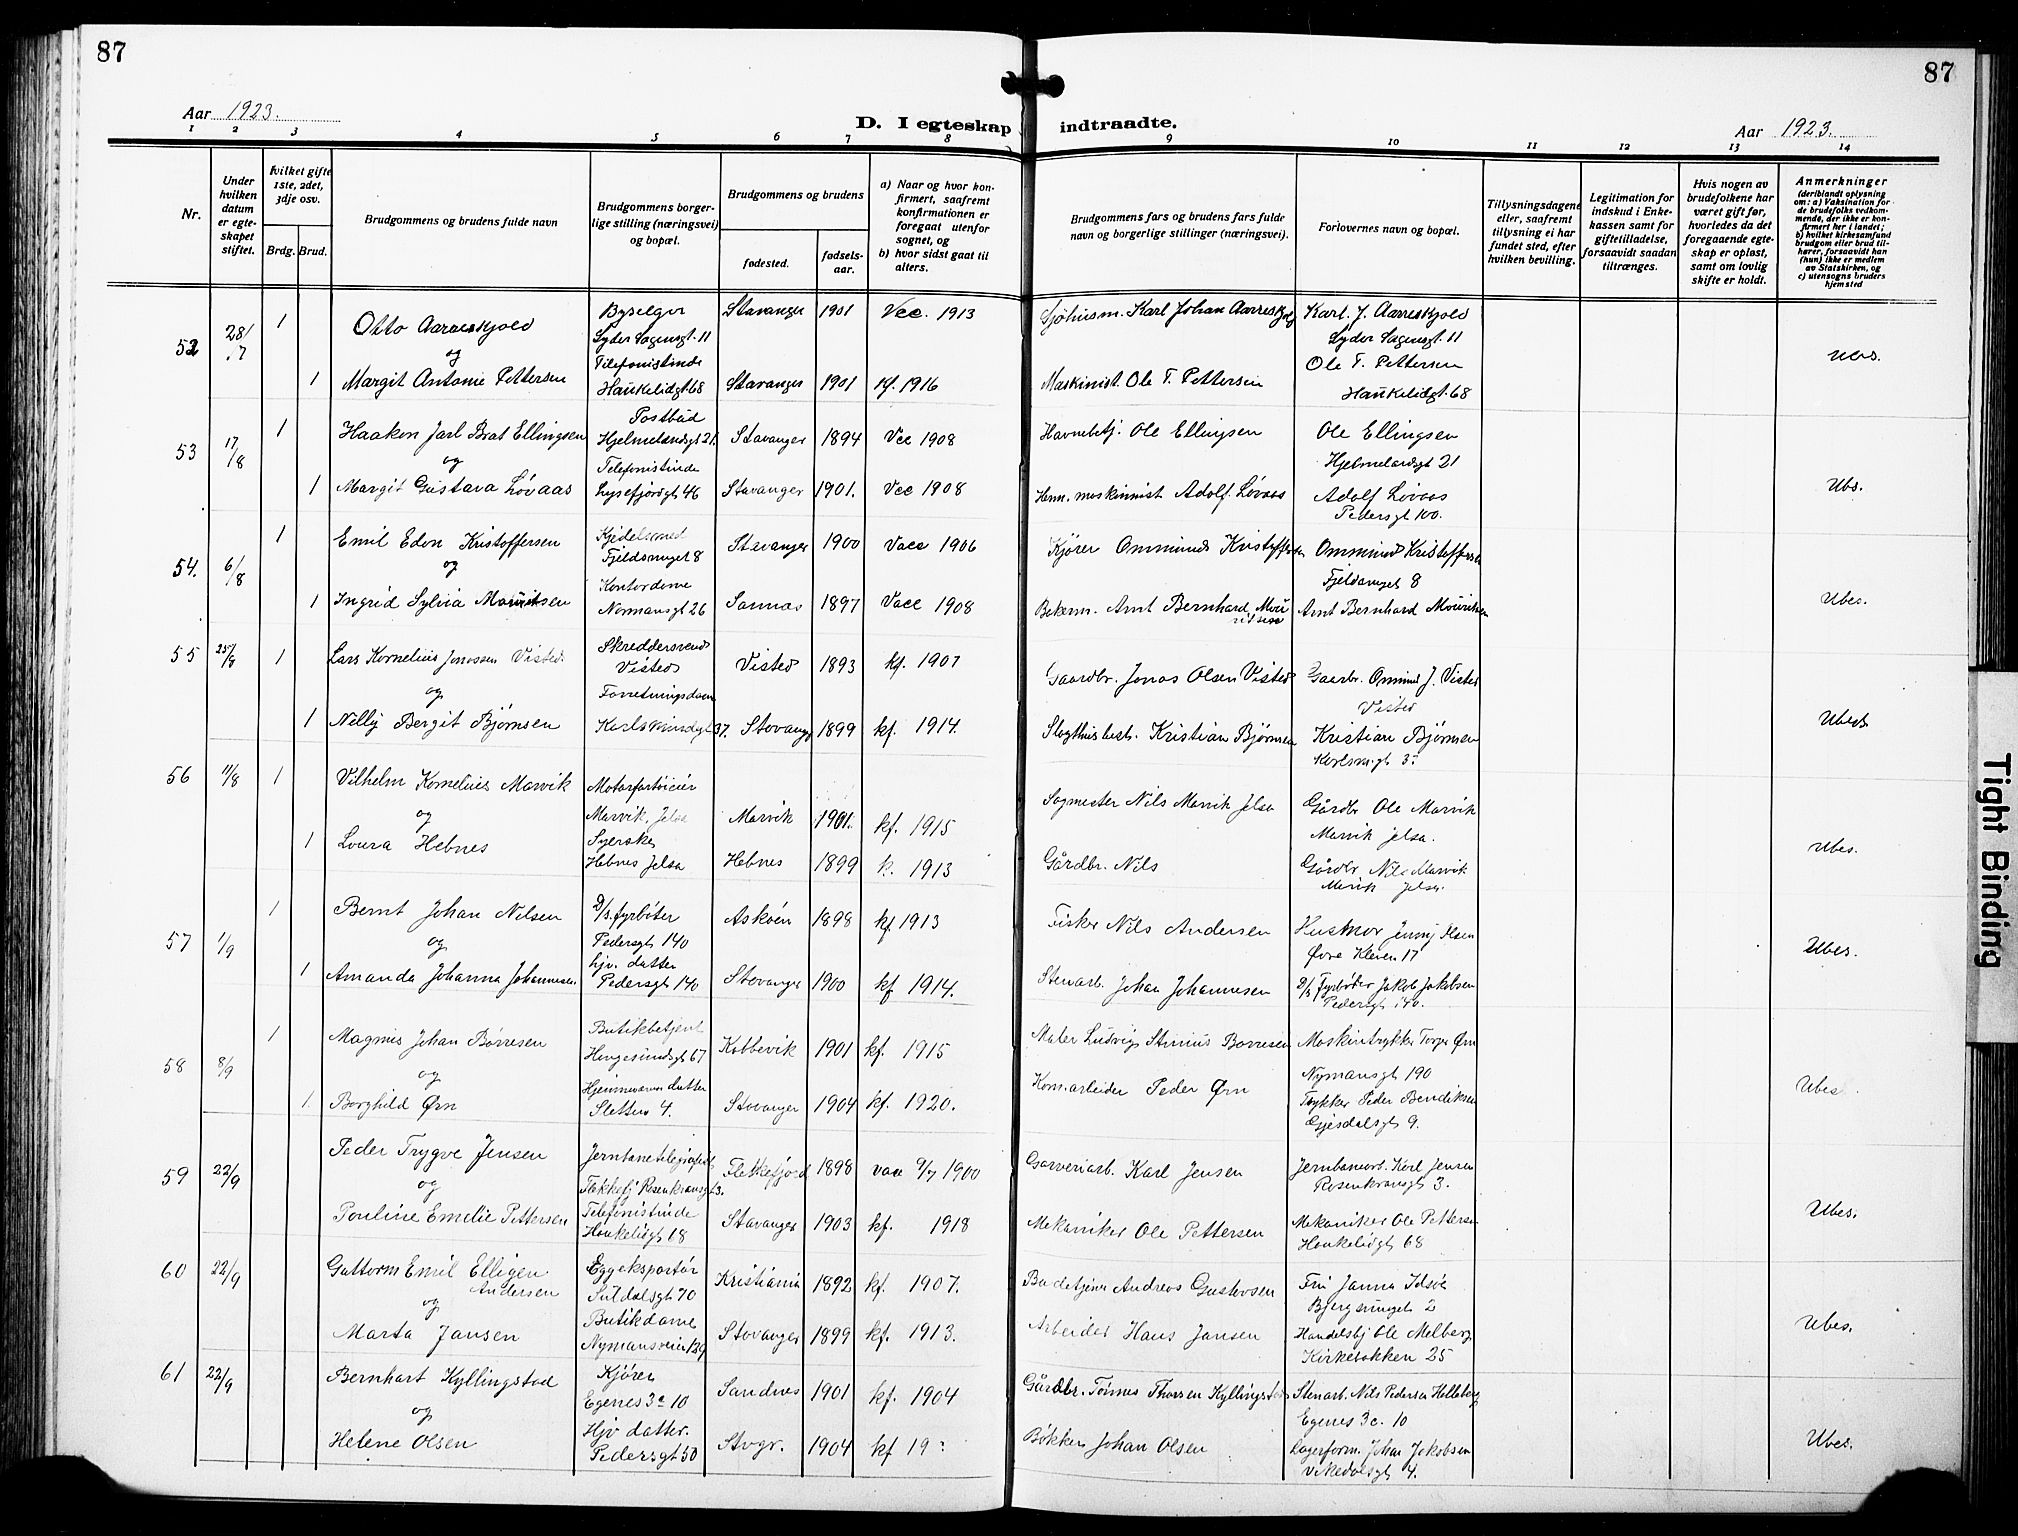 87
87
Aar 1923.
D. I egteskap indtraadte.
Aar 1923.
1 2 3 4 5 6 7 8 9 10 11 12 13 14
Nr.
Under hvilken datum er egteskapet stiftet.
Hvilket gifte 1ste, 2det, 3dje osv.
Brdg. Brud.
Brudgommens og brudens fulde navn
Brudgommens borgerlige stilling (næringsvei) og bopæl.
Brudgommens og brudens
fødested.
fødselsaar.
a) Naar og hvor konfirmert, saafremt konfirmationen er foregaat utenfor sognet, og
b) hvor sidst gaat til alters.
Brudgommens fars og brudens fars fulde navn og borgerlige stillinger (næringsvei).
Forlovernes navn og bopæl.
Tillysningsdagene eller, saafremt tillysning ei har fundet sted, efter hvilken bevilling.
Legitimation for indskud i Enkekassen samt for giftetilladelse, forsaavidt saadan tiltrænges.
Hvis nogen av brudefolkene har været gift før, hvorledes da det foregaaende egteskap er opløst, samt om lovlig skifte er holdt.
Anmerkninger
(deriblandt oplysning om: a) Vaksination for de brudefolks vedkommende, der ikke er konfirmert her i landet; b) hvilket kirkesamfund brudgom eller brud tilhører, forsaavidt han (hun) ikke er medlem av Statskirken, og c) utensogns bruders hjemsted
52 28/7 1 Otto Aarreskjold Byselger Stavanger 1901 Vcc. 1913 Sjøhusm. Karl Johan Aarreskjold Karl. J. Aarreskjold
og Lyder Sagensgt. 11 Lyder Sagensgt. 11
Telefonistinde Ole T. Pettersen Ubes.
1 Margit Antonie Pettersen Haukelidgt. 68 Stavanger 1901 kf. 1916 Maskinist. Ole T. Pettersen Haukelidgt. 68
53 17/8 1 Haakon Jarl Brat Ellingsen Postbud Hjelmelandsgt 21 Stavanger 1894 Vcc 1908 Havnebetj. Ole Ellingsen Ole Ellingsen
og Telefonistinde Hjelmelandsgt 21
1 Margit Gustava Lövaas Lysefjordgt 46 Stavanger 1901. Vcc 1908 Adolf Lövaas Adolf Lövaas Ubs.
Pedersgt 100.
54. 6/8 1 Emil Edon Kristoffersen Kjedelsmed Stavanger 1900 Vacc 1906 Kjörer Ommund Kristoffersen Ommund Kristoffersen
og Fjeldsmuget 8 Fjeldsmuget 8
Kontordame
1 Ingrid Sylvia Mauritsen Normansgt 26 1897 Vacc 1908 Bekm. Arnt Bernhard Mouritsen Arnt Bernhard Mouritsen Ubes.
55 25/8 1 Lars Kornelius Jonassen Visted Skreddersvend Visted Visted 1893 kf. 1907 Gaardbr. Jonas Olsen Visted Gaarbr. Ommund J. Visted
og Forretningsdame Visted
1 Nelly Bergit Bjørnsen Karlsmindegt 37. Stavanger 1899 kf. 1914. Kristian Bjørnsen Kristian Bjørnsen Ubes.
56 11/8 1 Vilhelm Kornelius Marvik Motorfartöieier Marvik. Jelsa Marvik 1901. kf. 1915 Sagmester Nils Marvik Jelsa Gårdbr Ole Marvik
og Marvik Jelsa.
1 Loura Hebnes Syerske Hebnes Jelsa Hebnes 1899 k. 1913 Gårdbr. Nils Gårdbr Nils Marvik Ubes.
Marvik Jelsa.
57 1/9 1 Bernt Johan Nilsen D/s. fyrböter Askøen 1898 kf 1913 Fisker Nils Andersen Husmor Jenny Olsen
og Pedersgt 140 Øvre Kleven 17 Ubes.
1 Amanda Johanna Johannesen hjv. datter Pedersgt 140 Stavanger 1900 kf 1914. Stenarb. Johan Johannesen D/s Fyrböder Jakob Jakobsen
Pedersgt 140.
58 8/9 1 Magnus Johan Börresen Butikbetjent Haugesundsgt 67 Kobbevik 1901 kf. 1915 Maler Ludvig Börresen Maskintrykker Torger Ørn
og Hjemmeværende datter Nymansgt 190
1. Borghild Ørn Sletten 4. Stavanger 1904 kf. 1920. Peder Ørn Trykker Peder Bendiksen Ubes
Gjesdalsgt 9.
59 22/9 Peder Trygve Jensen Flekkefjord 1898 vac 9/7 1900 Garveriarb. Karl Jensen Jernbanearb. Karl Jensen
og Rosenkransgt 3. Rosenkransgt 3.
Pouline Emelie Pettersen Telefonistinde Haukelidgt 68 Stavanger 1903 kf. 1918 Mekaniker Ole Pettersen Mekaniker Ole Pettersen Ubes.
Haukelidgt 68
60 22/9 Guttorm Emil Elligen Andersen Eggeksportør Suldalsgt 70 Kristiania 1892 kf. 1907. Badetjener Andreas Gustavsen Fru Janna Idsöe
og Bjergsmuget 2
Marta Jansen Butikdame Nymansveien 129 Stavanger 1899 kf. 1913. Arbeider Hans Jansen Handelsbj Ole Melberg Ubes.
Kirkebakken 25
61 22/9 Bernhart Kyllingstad Kjörer Egenes 3c 10 Sandnes 1901 kf. 1904 Gårdbr. Tönnes Kyllingstad Stenarb. Nils Pedersen
og Egenes 3c. 10
Helene Olsen Hjv datter. Pedersgt 50 Stvgr. 1904 kf 19 Bökker Johan Olsen Lagerform. Johan Jakobsen Ubes.
Vikedalsgt 4.
Tight Binding